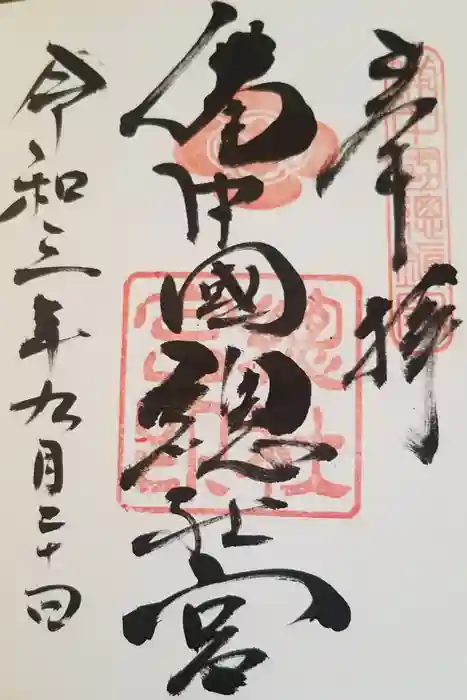 奉拝
備中國総社宮
令和三年九月二十日